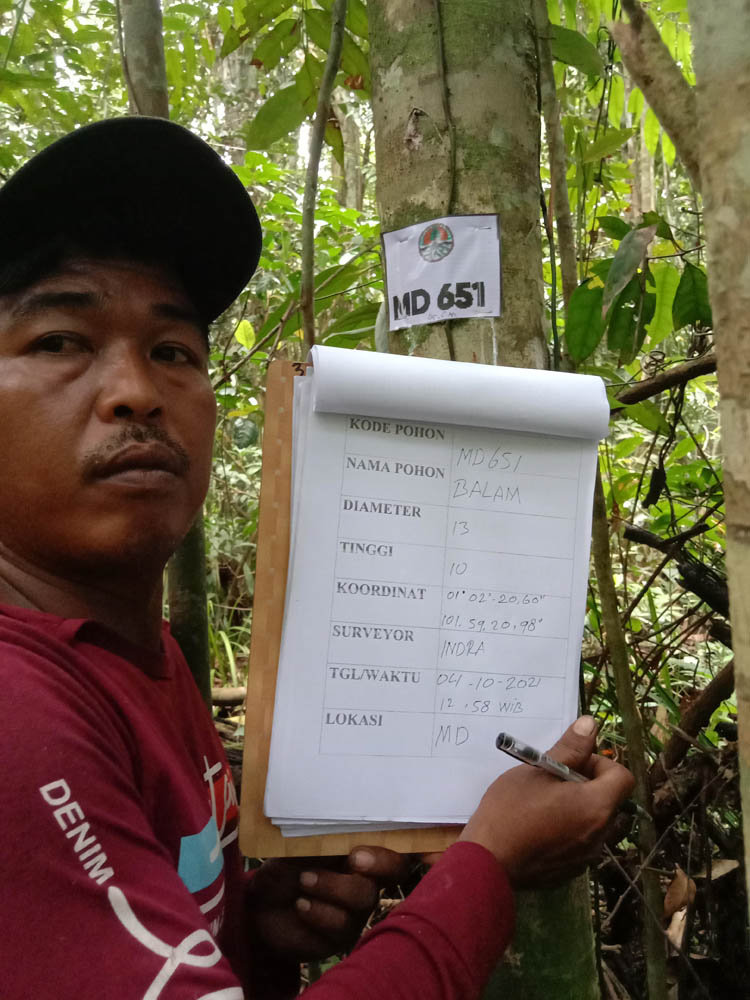 MD 651
KODE POHON MD651
NAMA POHON BALAM
DIAMETER 13
TINGGI 10
KOORDINAT 01° 02'-20,60"
101.59.20,98"
SURVEYOR INDRA
TGL/WAKTU 04-10-2021
12.58 WIB
LOKASI MD
DENIM